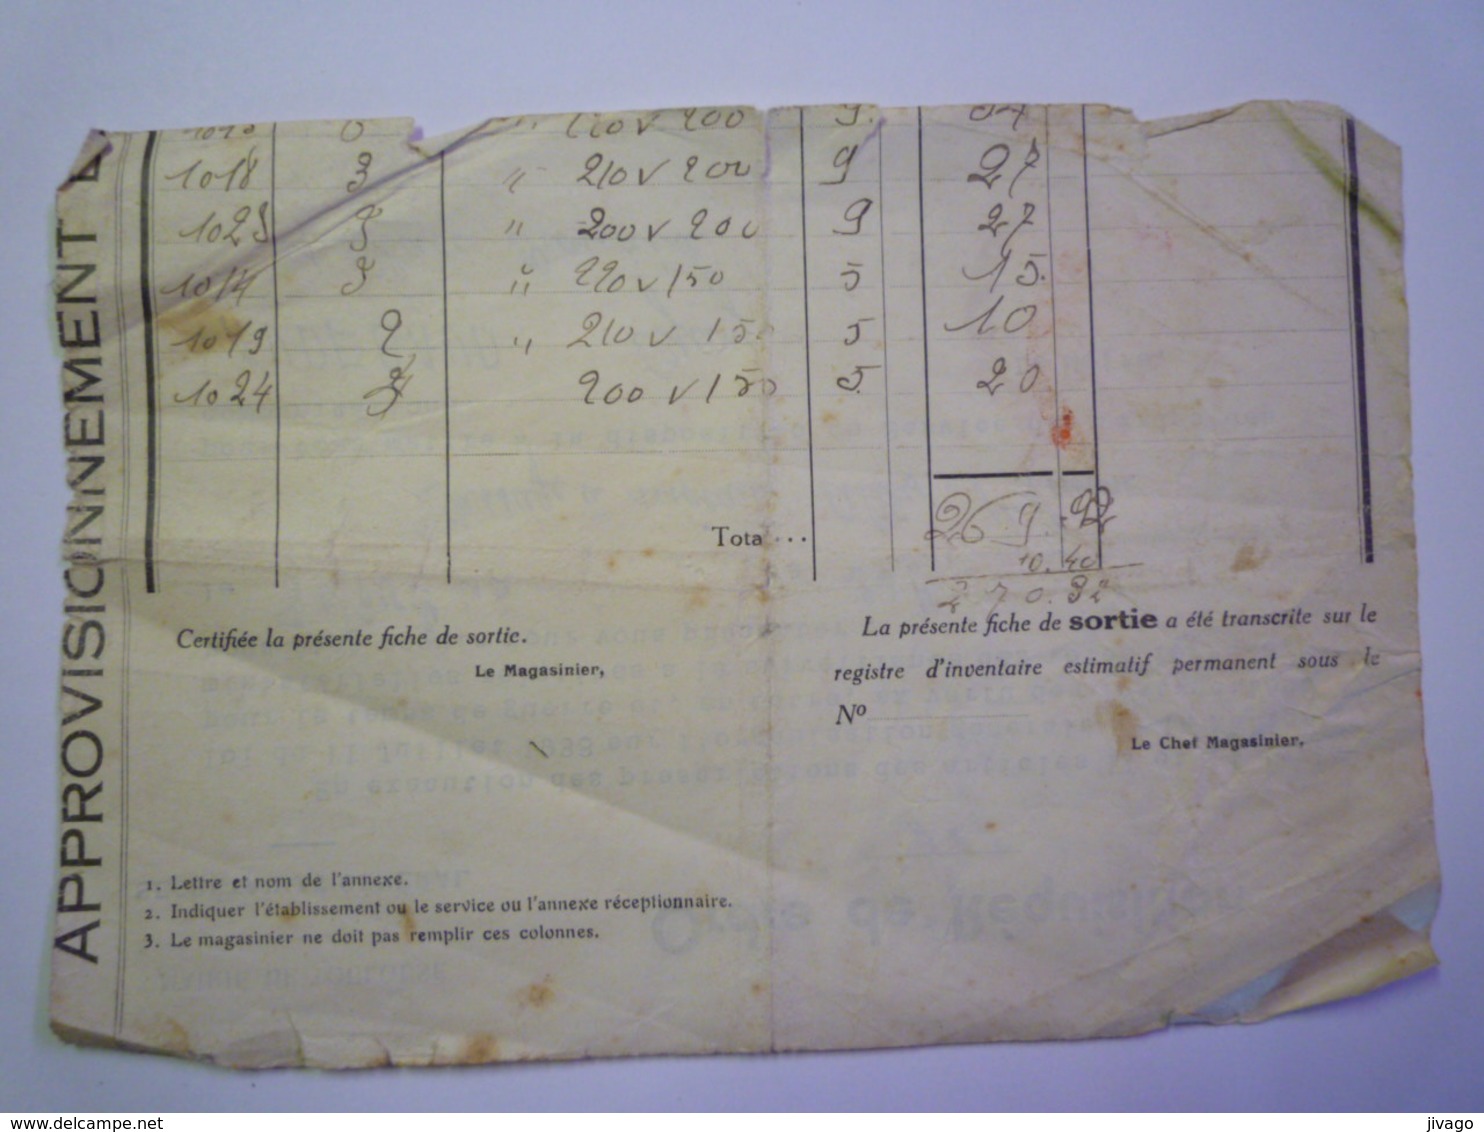 APPROVISIONNEMENT
220 v 200 9.
1018 3 " 210 v 200 9 27
1023 3 " 200 v 200 9 27
1014 3 " 220 v 150 5 15.
1019 2 " 210 v 150 5 10
1024 200 v 150 5. 20
Tota ...
269.92
10.40
270.32
Certifiée la présente fiche de sortie.
Le Magasinier,
La présente fiche de sortie a été transcrite sur le
registre d'inventaire estimatif permanent sous le
No
Le Chef Magasinier,
1. Lettre et nom de l'annexe.
2. Indiquer l'établissement ou le service ou l'annexe réceptionnaire.
3. Le magasinier ne doit pas remplir ces colonnes.
www.delcampe.net
jivago